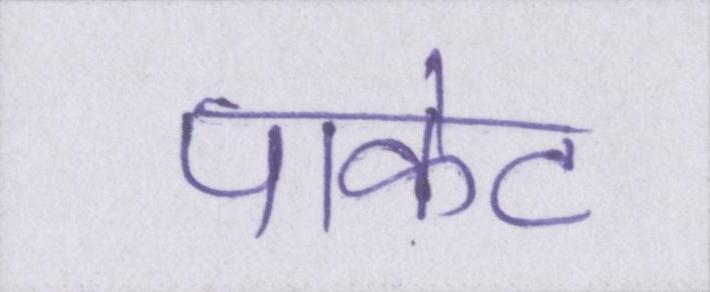 पाकेट